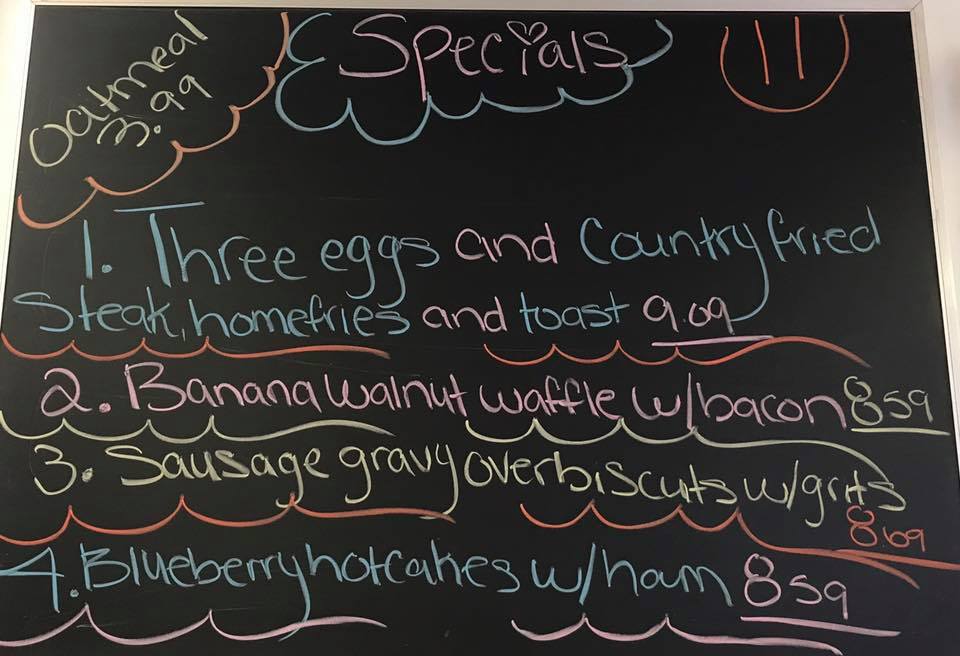 Oatmeal
3.99
Specials
11
1. Three eggs and Country fried
Steak, homefries and toast 9.09
2. Banana walnut waffle w/bacon 859
3. Sausage gravy over biscuits w/grits
8.69
4. Blueberry hotcakes w/ham 859